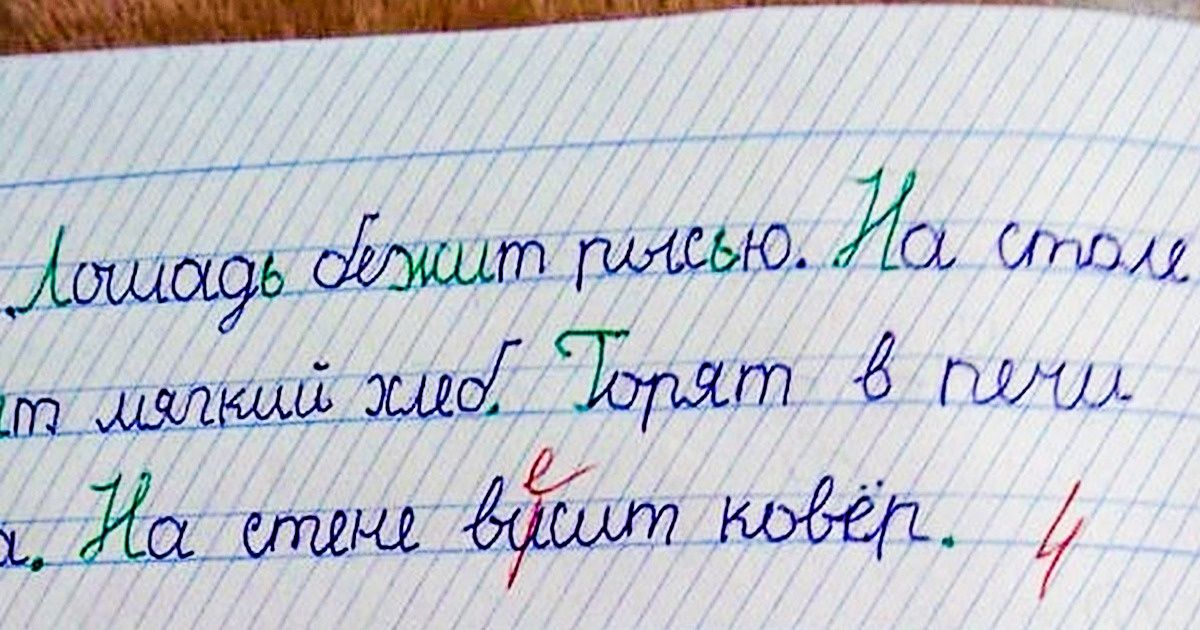 Лошадь бежит рысью. На столе
мягкий хлеб. Горят в печи
е
На стене висит ковёр. 4